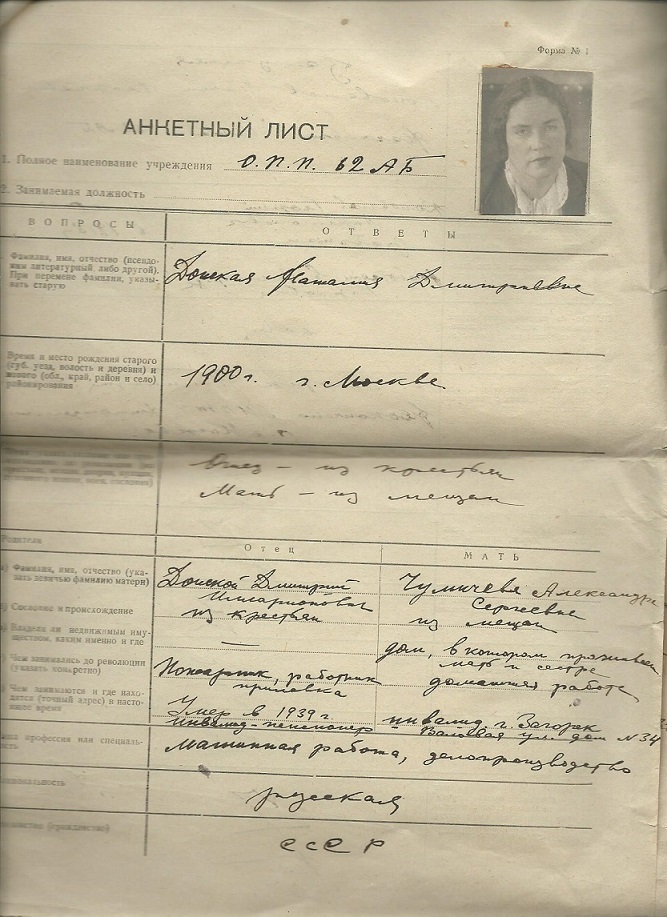 Форма № 1
АНКЕТНЫЙ ЛИСТ
1. Полное наименование учреждения О.П.П. 62 АБ
2. Занимаемая должность
ВОПРОСЫ
ОТВЕТЫ
Фамилия, имя, отчество (псевдо-
ним литературный либо другой).
При перемене фамилии, указы-
вать старую
Донская Наталия Дмитриевна
Время и место рождения старого
(губ. уезд, волость и деревня) и
нового (обл., край, район и село)
районирования
1900 г. г. Москва
Отец – из крестьян
Мать – из мещан
Родители
Отец
МАТЬ
Фамилия, имя, отчество (ука-
зать девичью фамилию матери)
Донской Дмитрий
Иларионович
Чумичева Александра
Сергеевна
Сословие и происхождение
из крестьян
из мещан
Владели ли недвижимым иму-
ществом, каким именно и где
—
дом, в котором
мать и сестра
Чем занимались до революции
(указать конкретно)
работник
прилавка
домашняя работа
Чем занимаются и где нахо-
дятся (точный адрес) в насто-
ящее время
Умер в 1939 г.
инвалид-пенсионер
инвалид. г. Загорск
Валовая ул. дом N 34
Ваша профессия или специаль-
ность
Машинная работа, делопроизводство
национальность
русская
(гражданство)
СССР